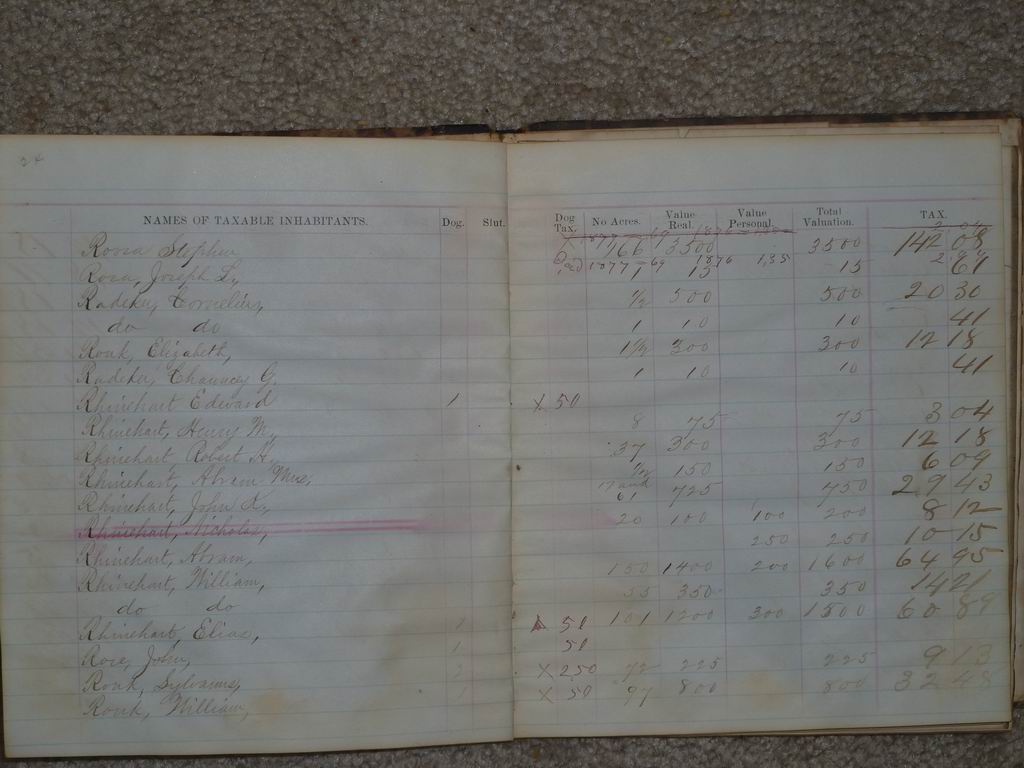 24
NAMES OF TAXABLE INHABITANTS. Dog. Slut. Dog Tax. No Acres. Value Real. Value Personal. Total Valuation. TAX.
Rossa Stephen X 166 3500 3500 142 08
Rosa, Joseph L, 1 15 15 61
Radeker, Cornelius, 1/2 500 500 20 30
do do 1 10 10 41
Ronk, Elizabeth, 1 1/2 300 300 12 18
Radeker, Chauncey G. 1 10 10 41
Rhinehart Edward 1 X 50
Rhinehart, Henry M, 8 75 75 3 04
Rhinehart Robert H, 37 300 300 12 18
Rhinehart, Abram Mrs, 1/2 150 150 6 09
Rhinehart, John L, 17 and 61 725 29 43
Rhinehart, Nicholas, 20 100 100 200 8 12
Rhinehart, Abram, 250 250 10 15
Rhinehart, William, 150 1400 200 1600 64 95
do do 55 350 350 14 21
Rhinehart, Elias, 1 50 101 1200 300 1500 60 89
Rose, John, 1 50
Ronk, Sylvanus, 2 X 250 225 225 9 13
Ronk, William, 1 X 50 97 800 800 32 48